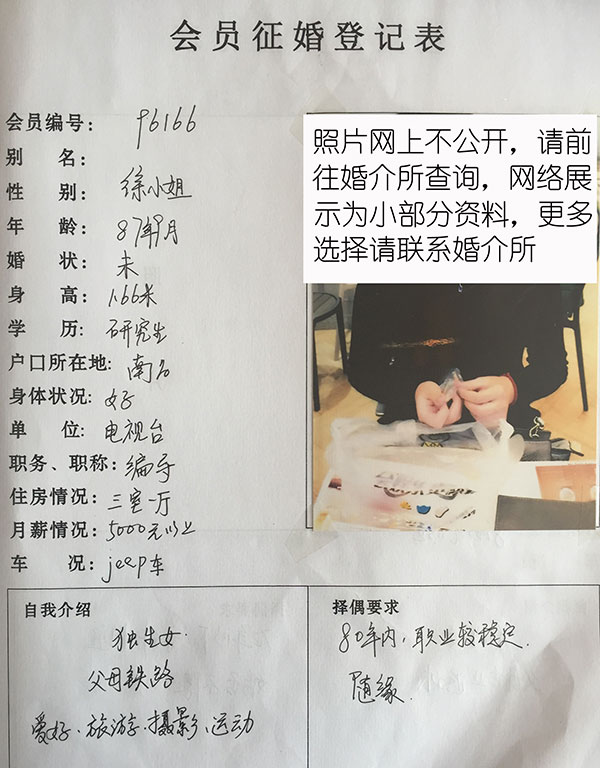 会员征婚登记表
会员编号: 96166
别 名:
性 别: 徐小姐
年 龄: 87年9月
婚 状: 未
身 高: 1.66米
学 历: 研究生
户口所在地: 南宁
身体状况: 好
单 位: 电视台
职务、职称: 编导
住房情况: 三室一厅
月薪情况: 5000元以上
车 况: jeep车
照片网上不公开，请前
往婚介所查询，网络展
示为小部分资料，更多
选择请联系婚介所
自我介绍
独生女
父母铁路
爱好、旅游、摄影、运动
择偶要求
80年内，职业较稳定.
随缘.